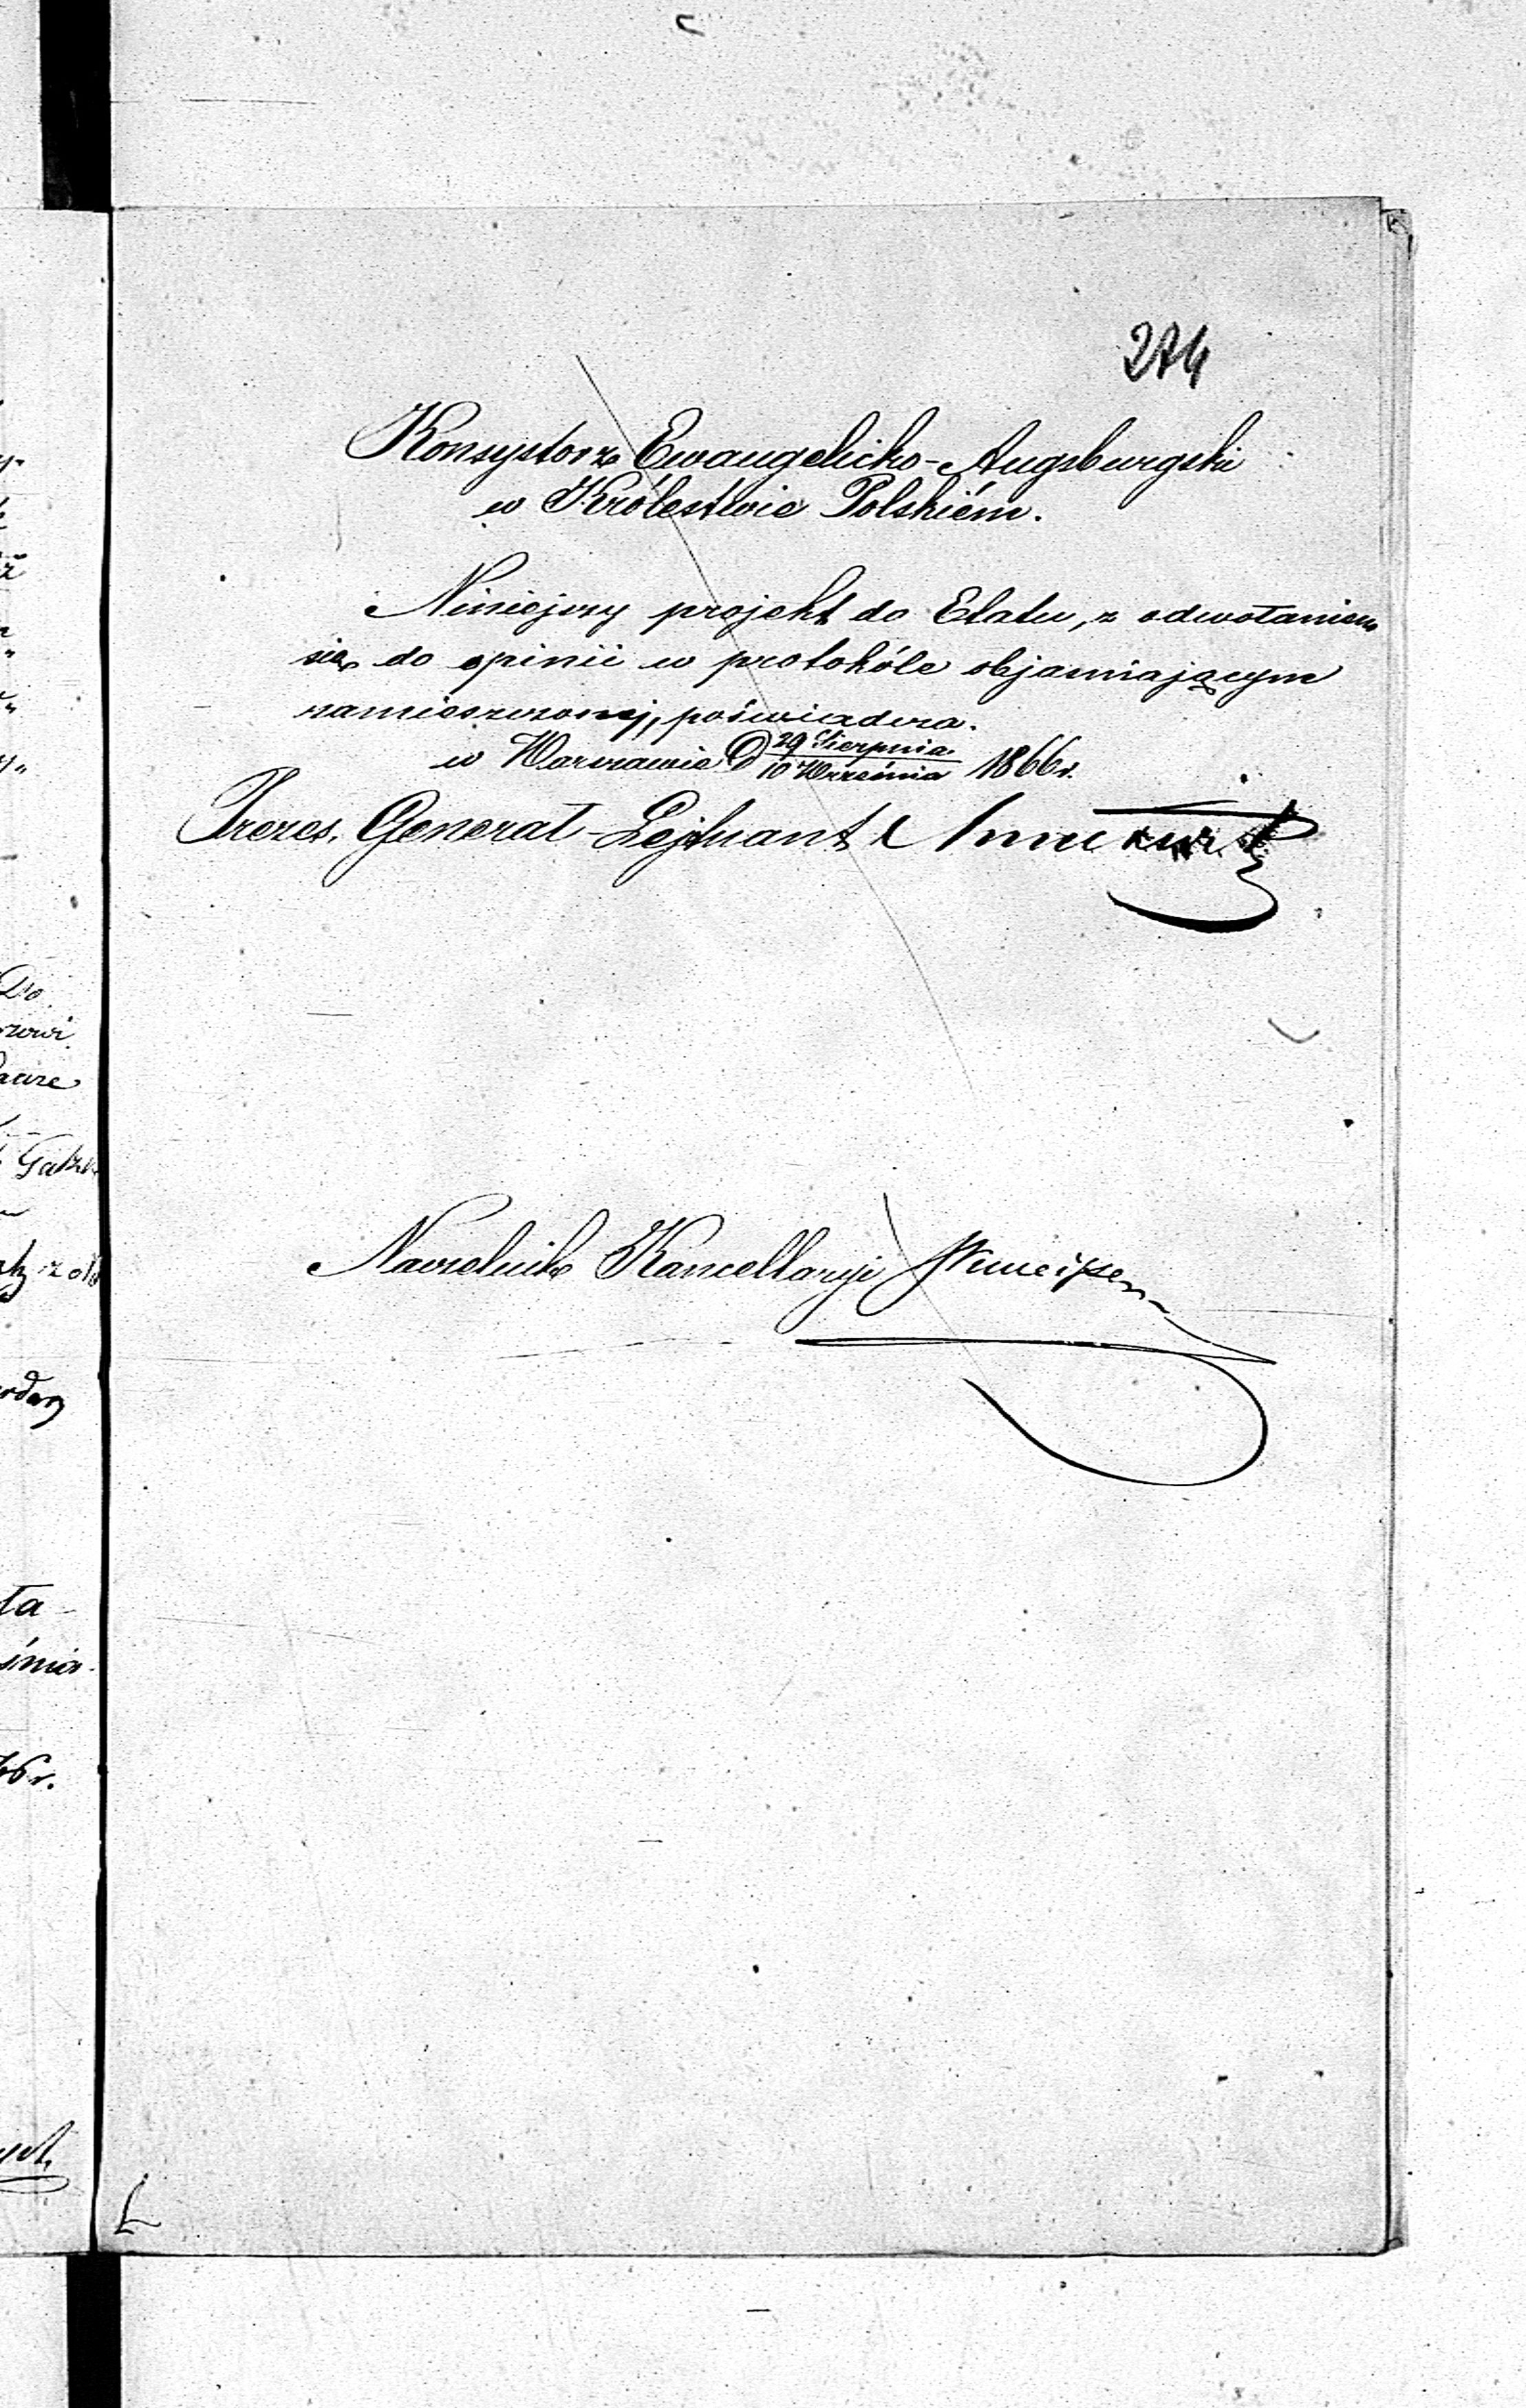 274
Konsystorz Ewangelicko-Augsburgski
w Królestwie Polskiém.
Niniejszy projekt do Etatu, z odwołaniem
się do opinii w protokóle objasniającym
zamieszczonej, poświadcza.
w Warszawie D 29 Sierpnia / 10 Września 1866 r.
Prezes, Generał-Lejtnant
Naczelnik Kancellaryi